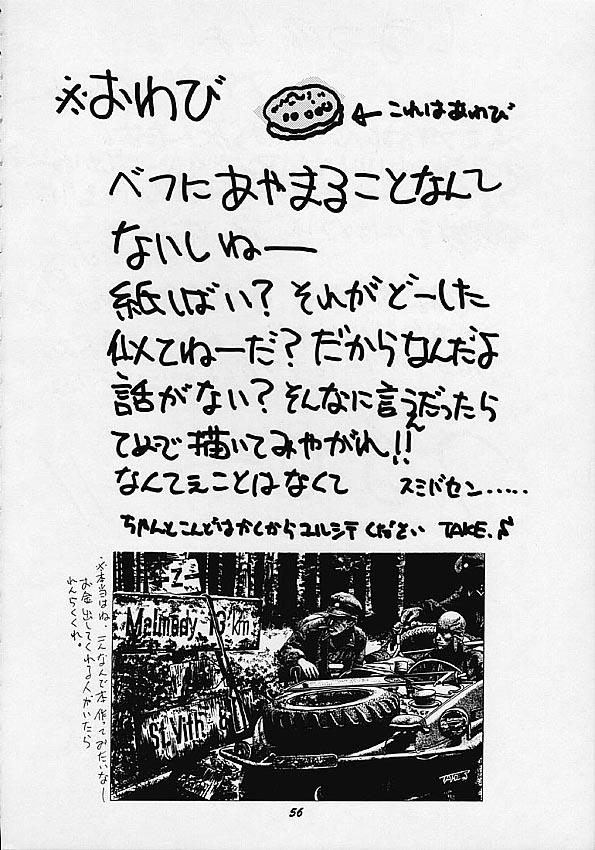 ※おわび
←これはあわび
べつにあやまることなんて
ないしねー
紙しばい？それがどーした
似てねーだ？だからなんだよ
話がない？そんなに言うんだったら
てめーで描いてみやがれ!!
なんてぇことはなくて スミバセン……
ちゃんとこんどはかくからユルシテください TAKE.♪
Malmedy 13 km
St.Vith 8
TAKE.♪
※本当はね、こんなんで本作ってみたいなー
お金出してくれる人がいたら
れんらくくれ。
56